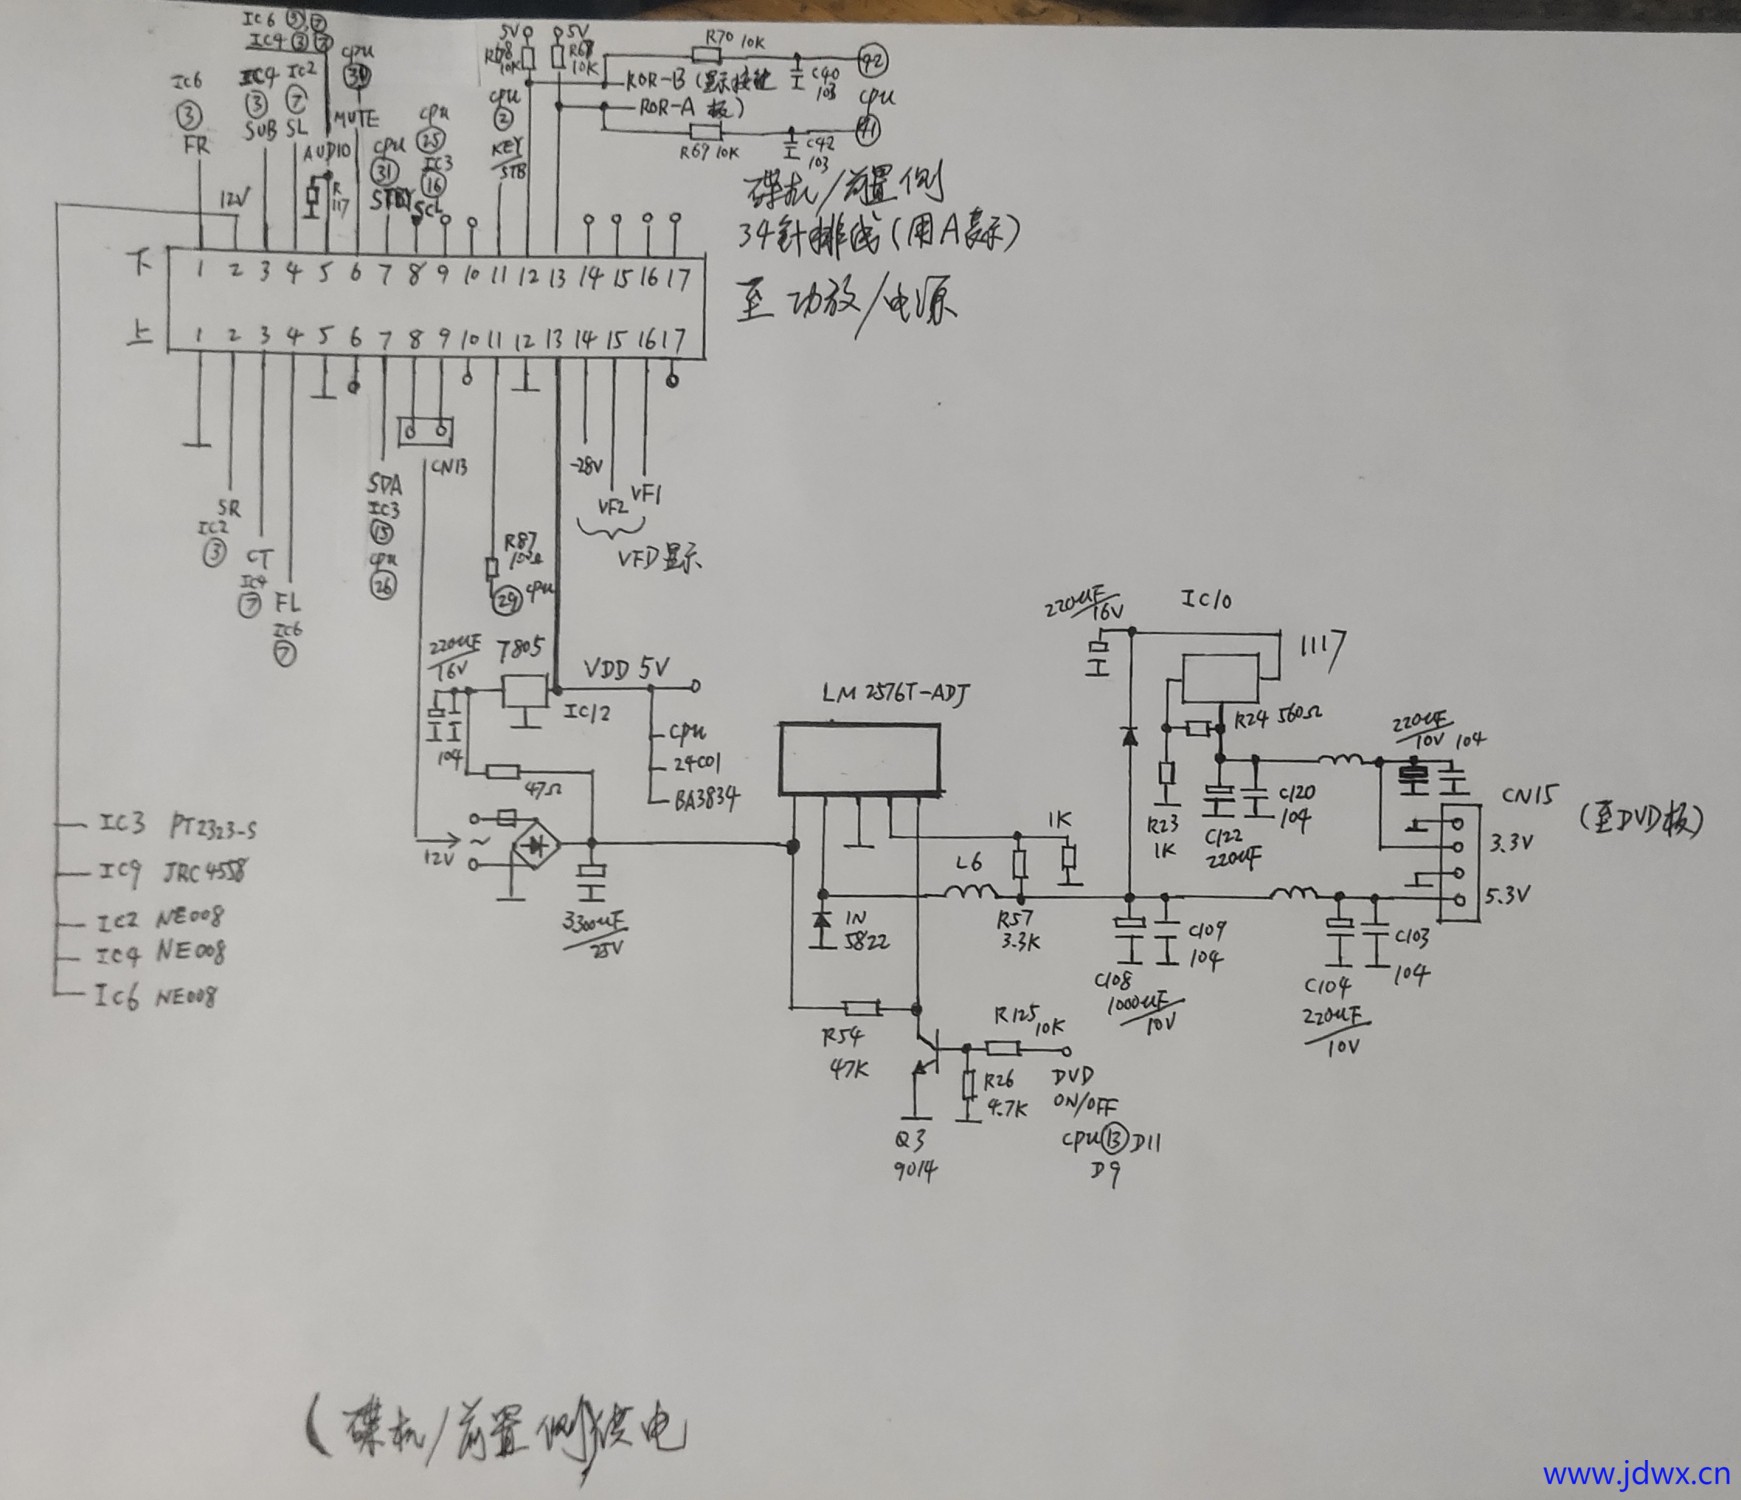 IC6 ⑤,⑦
IC4 ③ ⑦
cpu
IC6
③
FR
IC4
③
SUB
IC2
⑦
SL
MUTE
AUDIO
R
117
12V
cpu
㉛
STBY
cpu
㉕
IC3
⑯
SCL
cpu
②
KEY
STB
5V
10K
5V
10K
R70 10K
C40
103
㊷
cpu
㊶
ROR-B (显示按键
ROR-A 板)
R69 10K
C42
103
碟机/前置侧
34针排线(用A表示)
至 功放/电源
下 1 2 3 4 5 6 7 8 9 10 11 12 13 14 15 16 17
上 1 2 3 4 5 6 7 8 9 10 11 12 13 14 15 16 17
SR
IC2
③
CT
IC4
⑦
FL
IC6
⑦
SDA
IC3
⑮
cpu
㉖
CN13
R87
㉙ cpu
-28V
VF2
VF1
VFD显示
220uF/16V
7805
IC12
104
47Ω
VDD 5V
cpu
24C01
BA3834
12V
~
3300uF/25V
IC3 PT2323-S
IC9 JRC4558
IC2 NE008
IC4 NE008
IC6 NE008
LM2576T-ADJ
1N
5822
L6
1K
R57
3.3K
R54
47K
Q3
9014
R26
4.7K
R125
10K
DVD
ON/OFF
cpu⑬D11
D9
220uF/16V
IC10
1117
R24 560Ω
R23
1K
C122
220uF
C120
104
220uF/10V
104
CN15
(至DVD板)
3.3V
5.3V
C108
1000uF/10V
C109
104
C104
220uF/10V
C103
104
(碟机/前置侧)供电
www.jdwx.cn